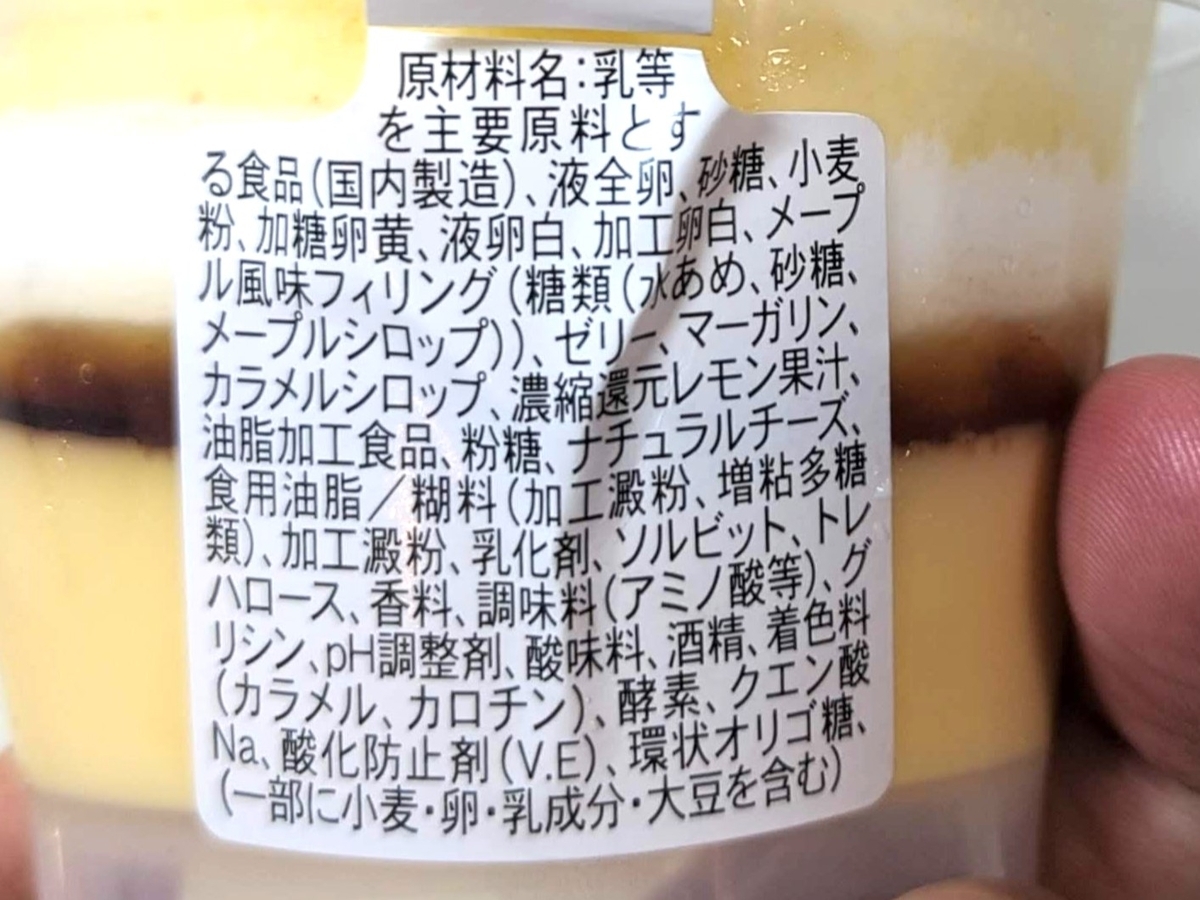 原材料名:乳等
を主要原料とす
る食品(国内製造)、液全卵、砂糖、小麦
粉、加糖卵黄、液卵白、加工卵白、メープ
ル風味フィリング(糖類(水あめ、砂糖、
メープルシロップ))、ゼリー、マーガリン、
カラメルシロップ、濃縮還元レモン果汁、
油脂加工食品、粉糖、ナチュラルチーズ、
食用油脂/糊料(加工澱粉、増粘多糖
類)、加工澱粉、乳化剤、ソルビット、トレ
ハロース、香料、調味料(アミノ酸等)、グ
リシン、pH調整剤、酸味料、酒精、着色料
(カラメル、カロチン)、酵素、クエン酸
Na、酸化防止剤(V.E)、環状オリゴ糖、
(一部に小麦・卵・乳成分・大豆を含む)